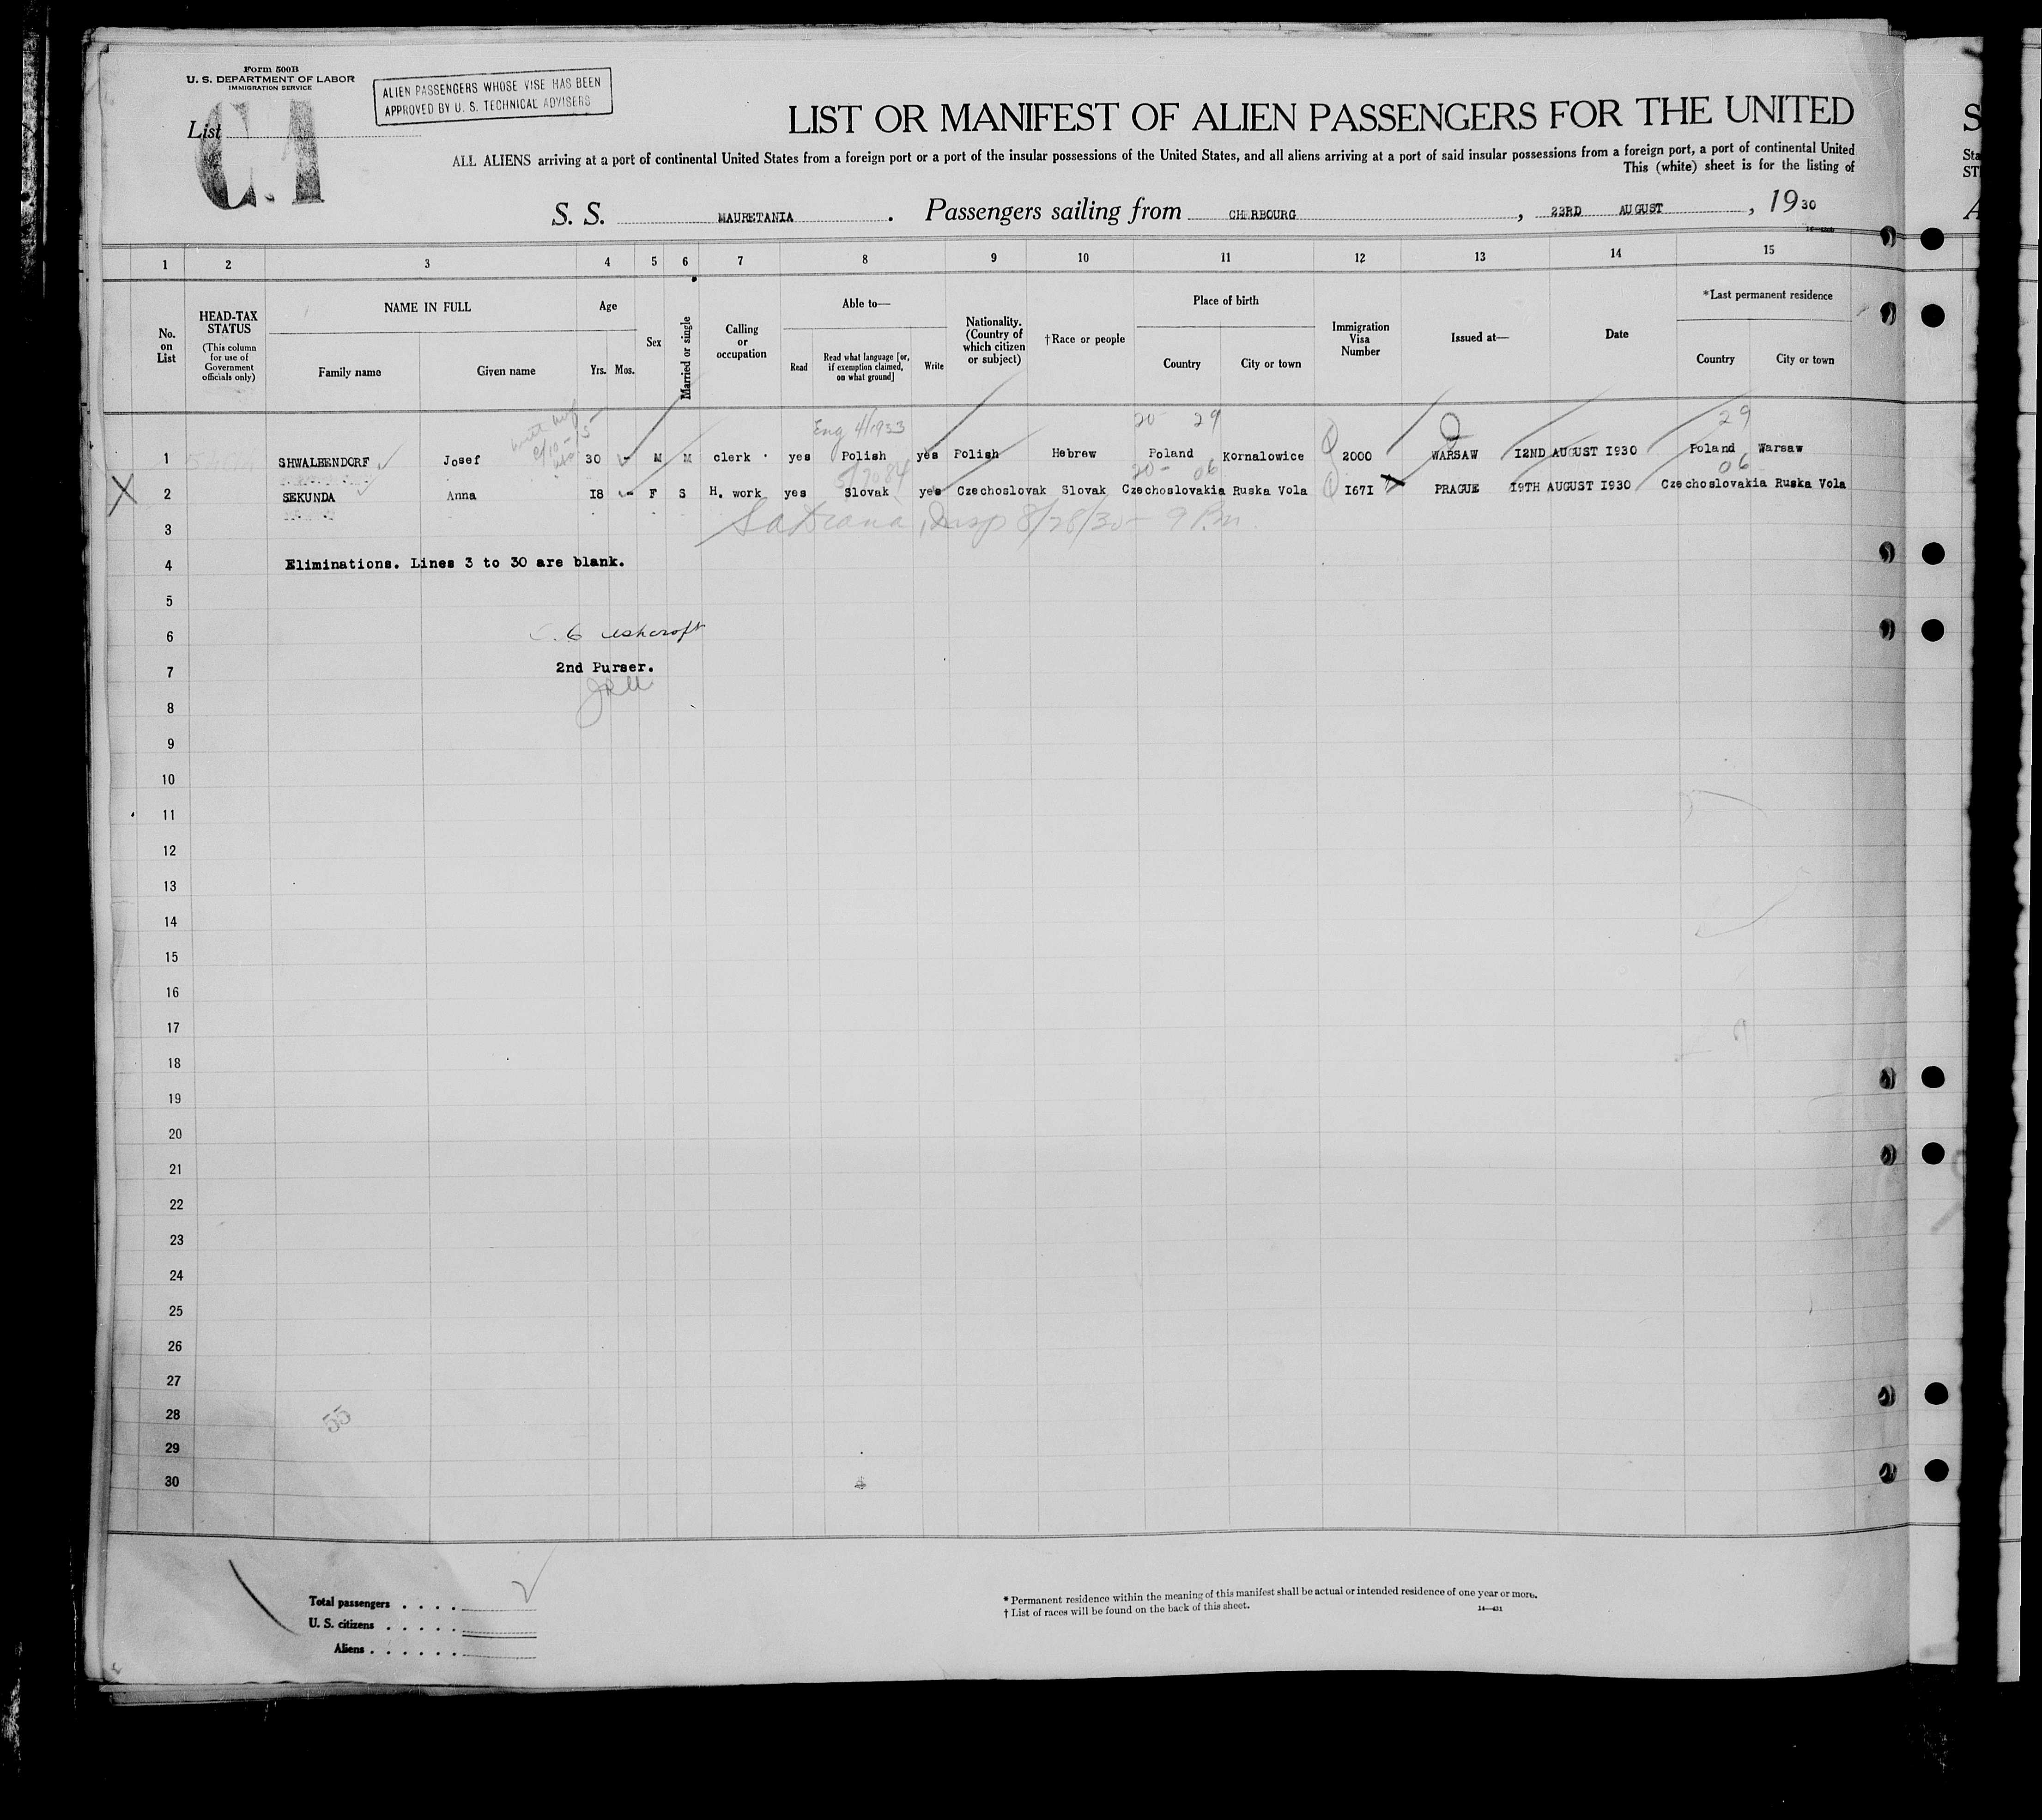 Form 500B
U. S. DEPARTMENT OF LABOR
IMMIGRATION SERVICE
ALIEN PASSENGERS WHOSE VISE HAS BEEN
APPROVED BY U. S. TECHNICAL ADVISERS
List
C.1
LIST OR MANIFEST OF ALIEN PASSENGERS FOR THE UNITED
ALL ALIENS arriving at a port of continental United States from a foreign port or a port of the insular possessions of the United States, and all aliens arriving at a port of said insular possessions from a foreign port, a port of continental United
This (white) sheet is for the listing of
S. S. MAURETANIA . Passengers sailing from CHERBOURG , 23RD AUGUST , 1930
1 2 3 4 5 6 7 8 9 10 11 12 13 14 15
No. on List
HEAD-TAX STATUS
(This column for use of Government officials only)
NAME IN FULL
Family name Given name
Age
Yrs. Mos.
Sex
Married or single
Calling or occupation
Able to—
Read
Read what language [or, if exemption claimed, on what ground]
Write
Nationality. (Country of which citizen or subject)
†Race or people
Place of birth
Country City or town
Immigration Visa Number
Issued at—
Date
*Last permanent residence
Country City or town
Eng 4/1933 20 29 29
1 SHWALBENDORF Josef 30 - M M clerk yes Polish yes Polish Hebrew Poland Kornalowice 2000 WARSAW I2ND AUGUST I930 Poland Warsaw
20- 06 06
X 2 SEKUNDA Anna I8 - F S H. work yes Slovak yes Czechoslovak Slovak Czechoslovakia Ruska Vola I67I PRAGUE I9TH AUGUST I930 Czechoslovakia Ruska Vola
3
Insp 8/28/30 - 9 P.m.
4 Eliminations. Lines 3 to 30 are blank.
5
6 Ashcroft
7 2nd Purser.
8
9
10
11
12
13
14
15
16
17
18
19
20
21
22
23
24
25
26
27
28
55
29
30
Total passengers . . . .
U. S. citizens . . . . .
Aliens . . . . . .
* Permanent residence within the meaning of this manifest shall be actual or intended residence of one year or more.
† List of races will be found on the back of this sheet.
14—431
S
Sta
ST
A